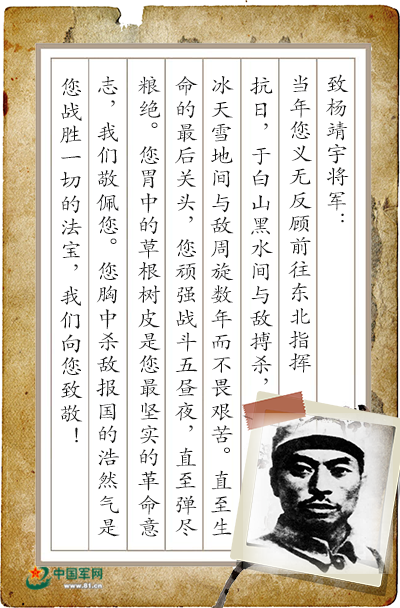 致杨靖宇将军：
当年您义无反顾前往东北指挥
抗日，于白山黑水间与敌搏杀，
冰天雪地间与敌周旋数年而不畏艰苦。直至生
命的最后关头，您顽强战斗五昼夜，直至弹尽
粮绝。您胃中的草根树皮是您最坚实的革命意
志，我们敬佩您。您胸中杀敌报国的浩然气是
您战胜一切的法宝，我们向您致敬！
中国军网
www.81.cn